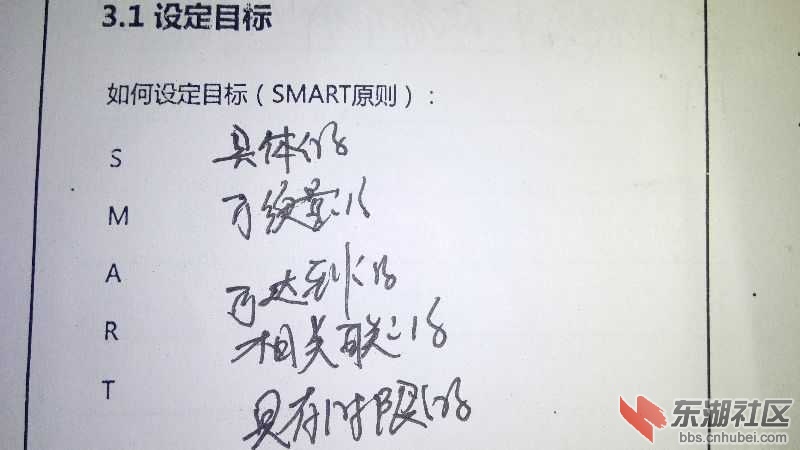 3.1 设定目标
如何设定目标（SMART原则）：
S 具体的
M 可衡量的
A 可达到的
R 相关联的
T 具有时限的
东湖社区
bbs.cnhubei.com